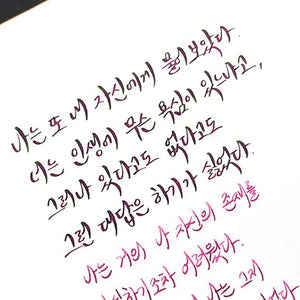 나는 또 내 자신에게 물어보았다.
너는 인생에 무슨 욕심이 있느냐고,
그러나 있다고도 없다고도
그런 대답은 하기가 싫었다.
나는 거의 나 자신의 존재를
인식하기조차 어려웠다.
나는 그저